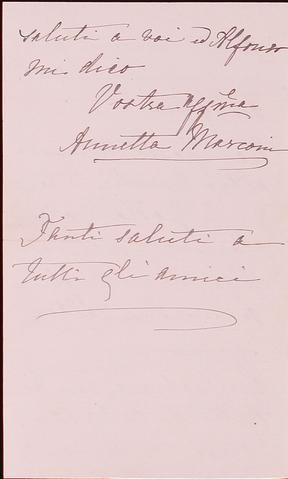 saluti a voi ed Alfonso
mi dico
Vostra affma
Annetta Marconi
Tanti saluti a
tutti gli amici